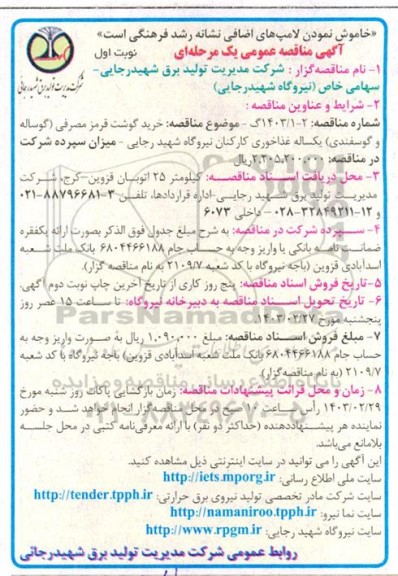 «خاموش نمودن لامپ‌های اضافی نشانه رشد فرهنگی است»
آگهی مناقصه عمومی یک مرحله‌ای
نوبت اول
شرکت مدیریت تولید برق شهیدرجایی
۱- نام مناقصه‌گزار: شرکت مدیریت تولید برق شهیدرجایی-
سهامی خاص (نیروگاه شهیدرجایی)
۲- شرایط و عناوین مناقصه:
شماره مناقصه: ۱۴۰۳/۱-۲گ - موضوع مناقصه: خرید گوشت قرمز مصرفی (گوساله
و گوسفندی) یکساله غذاخوری کارکنان نیروگاه شهید رجایی - میزان سپرده شرکت
در مناقصه: ۲.۲۰۵.۲۰۰.۰۰۰ریال
۳- محل دریافت اسناد مناقصه: کیلومتر ۲۵ اتوبان قزوین-کرج، شرکت
مدیریت تولید برق شهید رجایی-اداره قراردادها، تلفنی ۳-۸۸۷۹۶۶۸۱-۰۲۱
و ۱۲-۳۲۸۴۹۲۱۱-۰۲۸ - داخلی ۶۰۷۳
۴- سپرده شرکت در مناقصه: به شرح مبلغ جدول فوق الذکر بصورت ارائه یکفقره
ضمانت نامه بانکی یا واریز وجه به حساب جام ۶۸۰۴۴۶۶۱۸۸ بانک ملت شعبه
اسدآبادی قزوین (باجه نیروگاه با کد شعبه ۲۱۰۹/۷ به نام مناقصه گزار).
۵-تاریخ فروش اسناد مناقصه: پنج روز کاری از تاریخ آخرین چاپ نوبت دوم آگهی.
۶- تاریخ تحویل اسناد مناقصه به دبیرخانه نیروگاه: تا ساعت ۱۵ عصر روز
پنجشنبه مورخ ۱۴۰۳/۰۲/۲۷.
۷- مبلغ فروش اسناد مناقصه: مبلغ ۱.۰۹۰.۰۰۰ ریال به صورت واریز وجه به
حساب جام ۶۸۰۴۴۶۶۱۸۸ بانک ملت شعبه اسدآبادی قزوین) باجه نیروگاه با کد شعبه
۲۱۰۹/۷) به نام مناقصه‌گزار).
۸- زمان و محل قرائت پیشنهادات مناقصه: زمان بازگشایی پاکات روز شنبه مورخ
۱۴۰۳/۰۲/۲۹ رأس ساعت ۱۰ صبح در محل مناقصه‌گزار انجام خواهد شد و حضور
نماینده هر پیشنهاددهنده (حداکثر دو نفر) با ارائه معرفی‌نامه کتبی در محل جلسه
بلامانع می‌باشد.
این آگهی را می توانید در سایت اینترنتی ذیل مشاهده کنید.
سایت ملی اطلاع رسانی: http://iets.mporg.ir
سایت شرکت مادر تخصصی تولید نیروی برق حرارتی: http://tender.tpph.ir
سایت نما نیرو: http://namaniroo.tpph.ir
سایت نیروگاه شهید رجایی: http://www.rpgm.ir
روابط عمومی شرکت مدیریت تولید برق شهیدرجائی
ParsNamadData
پایگاه اطلاع رسانی مناقصه و مزایده